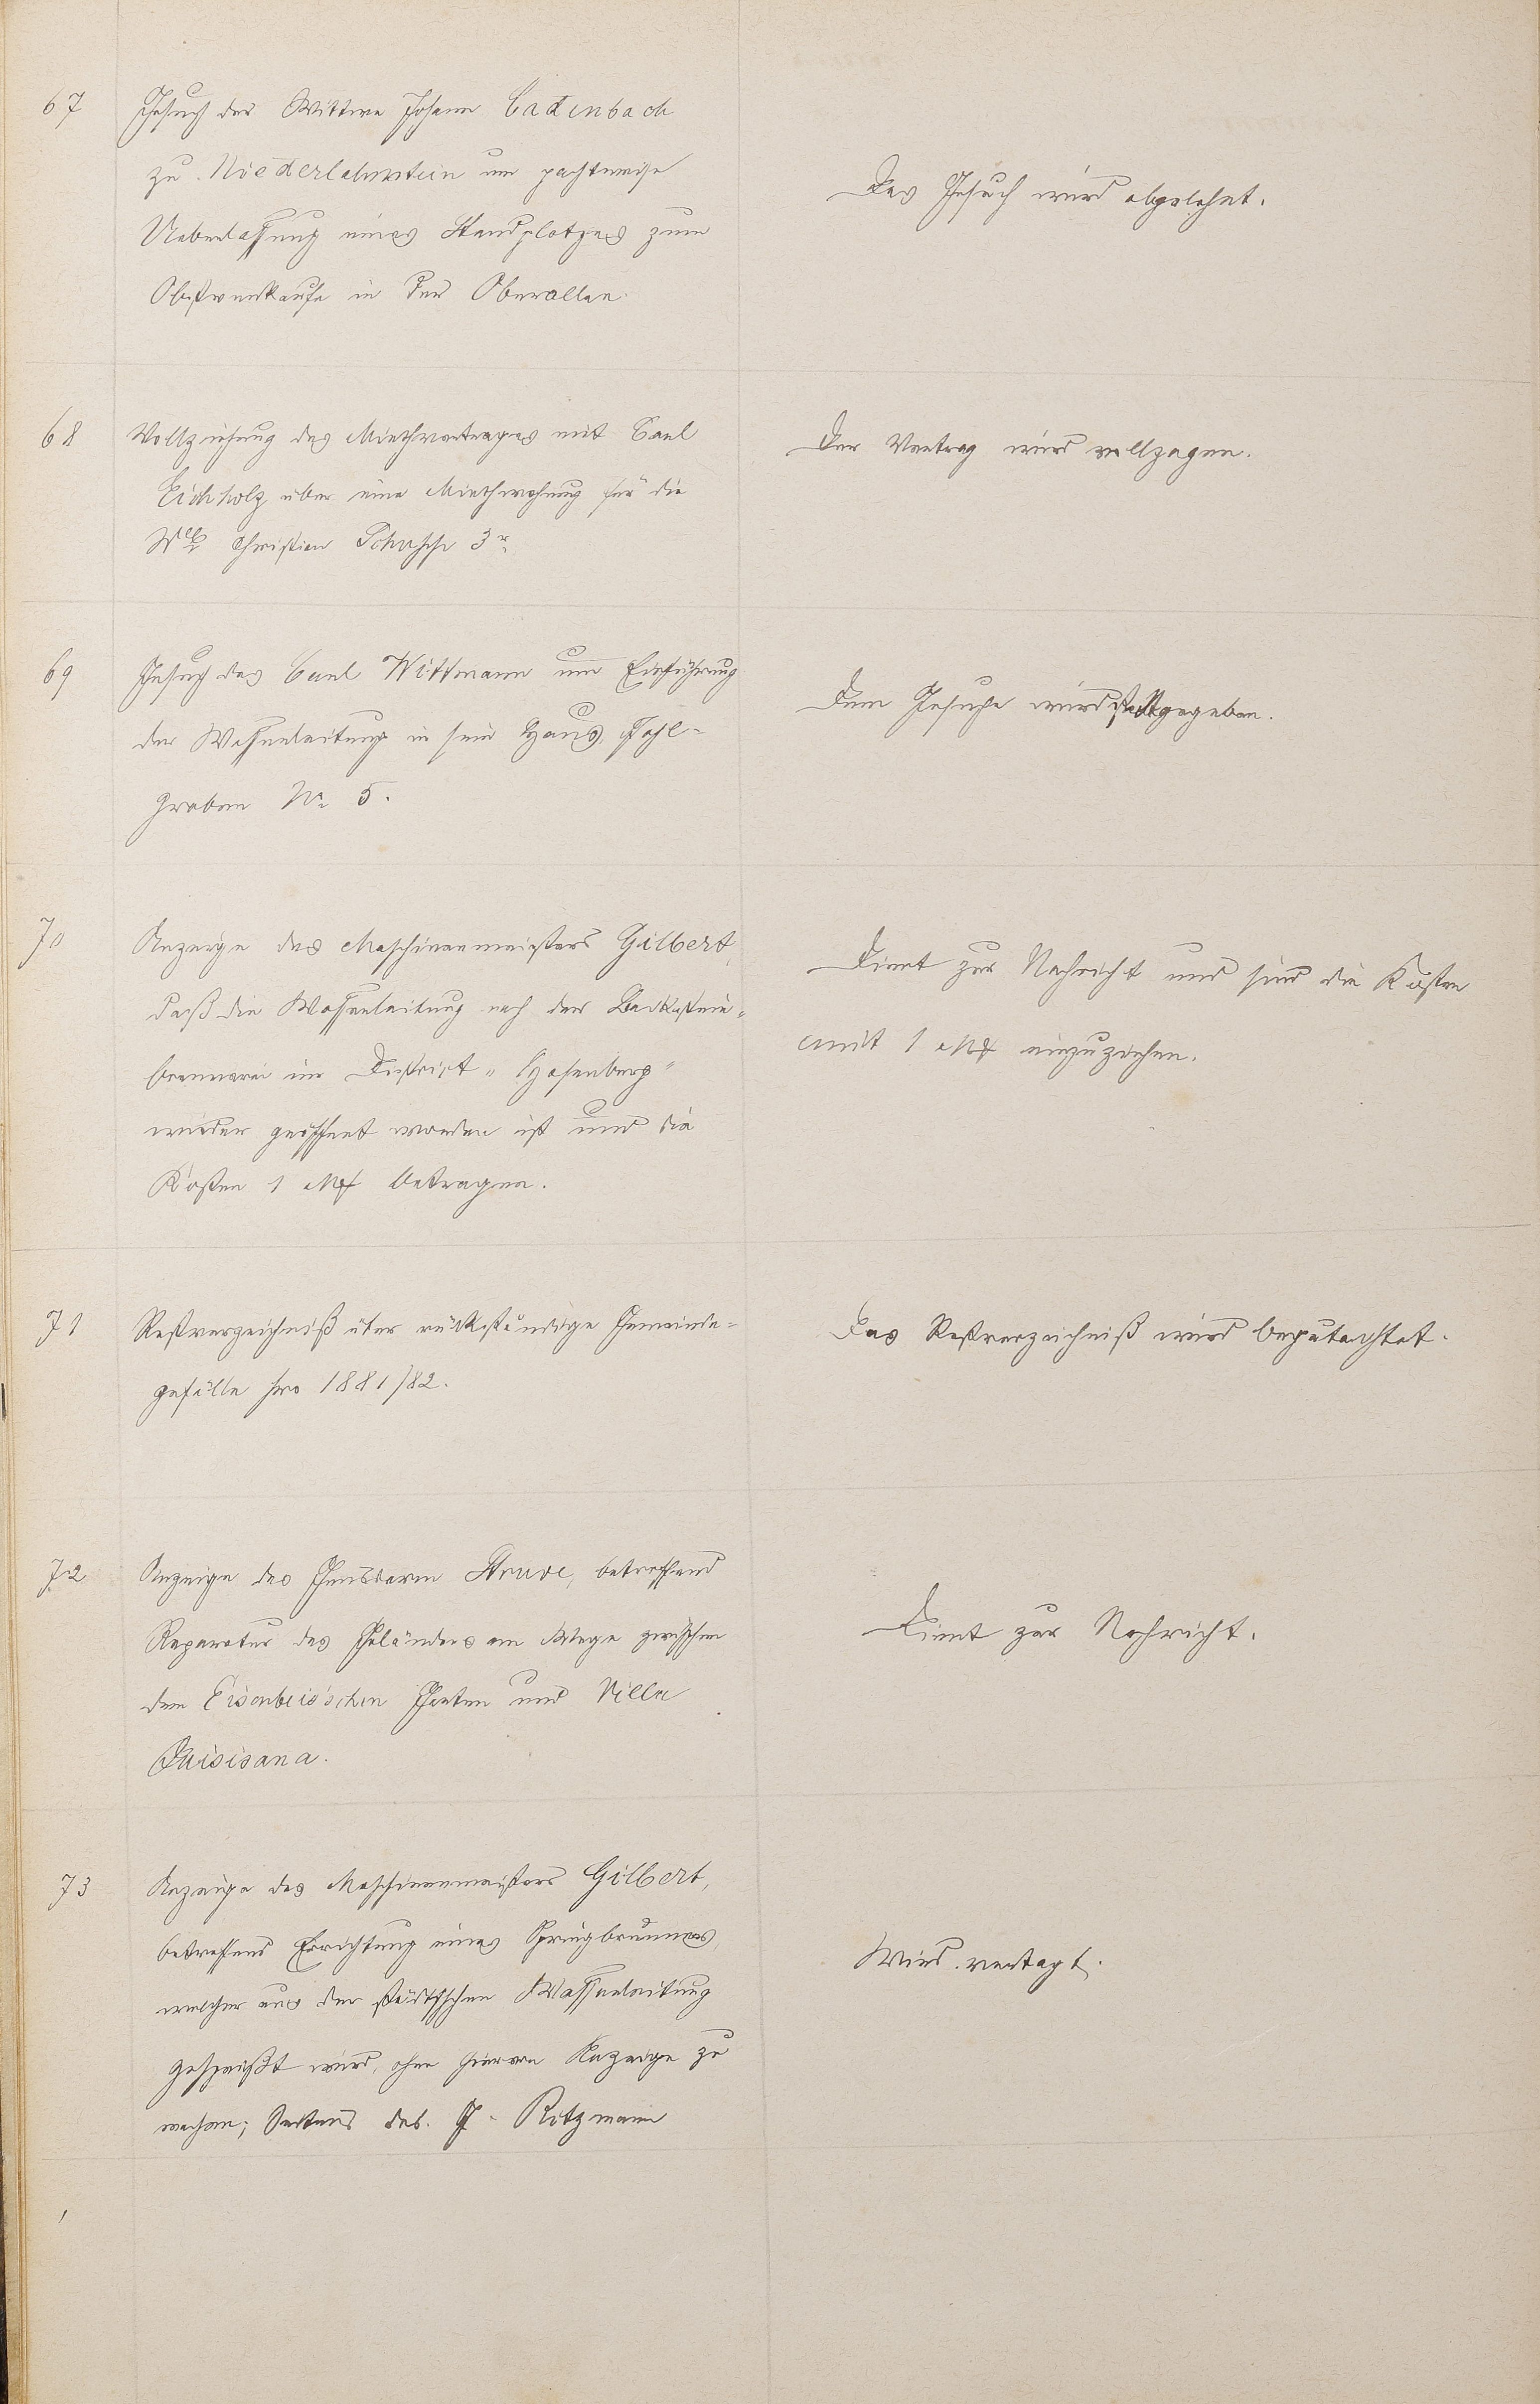 67 Gesuch der Wittwe Johann Cadenbach
zu Niederlahnstein um pachtweise
Ueberlassung eines Standplatzes zum
Obstverkaufe in der Oberallee.
Das Gesuch wird abgelehnt.
68 Vollziehung des Miethvertrages mit Carl
Eichholz über eine Miethwohnung für die
Wwe Christian 3r
Der Vertrag wird vollzogen.
69 Gesuch des Carl Wittmann um Einführung
der Wasserleitung in sein Haus,
graben No 5.
Dem Gesuche wird stattgegeben.
70 Anzeige des Maschinenmeisters Gilbert,
daß die Wasserleitung nach der Backstein-
brennerei im District "Hasenberg"
wieder geöffnet worden ist und die
Kosten 1 M betragen.
Dient zur Nachricht und sind die Kosten
mit 1 M einzuziehen.
71 Restverzeichniß über rückständige Gemeinde-
gefälle pro 1881/82.
Das Restverzeichniß wird begutachtet.
72 Anzeige des Gensdarm Struve, betreffend
Reparatur des Geländers am Wege zwischen
dem Eisenbeis'schen Garten und Villa
Quisisana.
Dient zur Nachricht.
73 Anzeige des Maschinenmeisters Gilbert,
betreffend Errichtung eines Springbrunnens,
welcher aus der städtischen Wasserleitung
gespeißt wird, ohne hiervon Anzeige zu
machen; Seitens des Ritzmann
Wird vertagt.